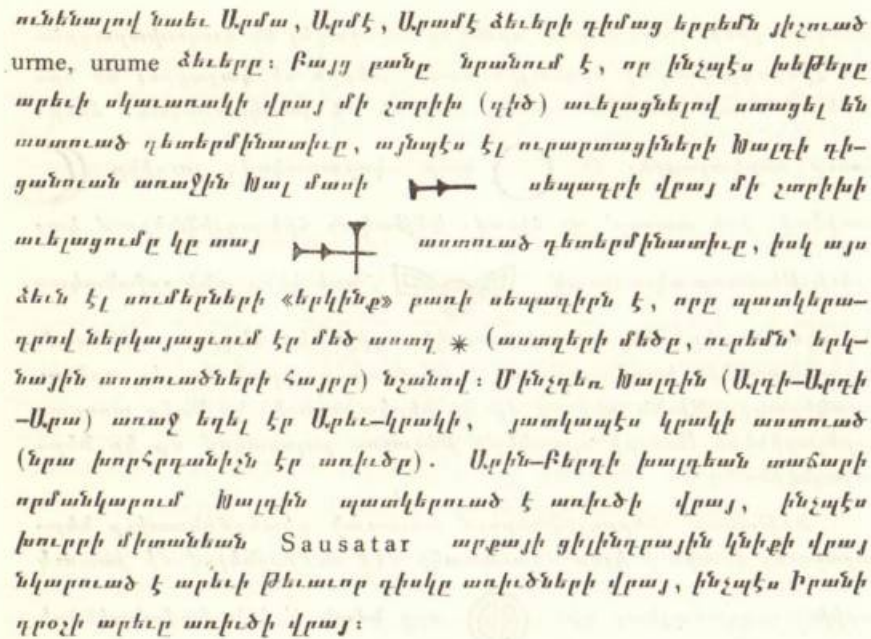 ունենալով նաեւ Արմա, Արմէ, Արամէ ձեւերի դիմաց երբեմն յիշուած
urme, urume ձեւերը։ Բայց բանը նրանում է, որ ինչպէս խեթերը
արեւի սկաւառակի վրայ մի շտրիխ (գիծ) աւելացնելով ստացել են
աստուած դետերմինատիւը, այնպէս էլ ուրարտացիների Խալդի դի–
ցանուան առաջին Խալ մասի սեպագրի վրայ մի շտրիխի
աւելացումը կը տայ աստուած դետերմինատիւը, իսկ այս
ձեւն էլ սումերների «երկինք» բառի սեպագիրն է, որը պատկերա–
գրով ներկայացւում էր մեծ աստղ * (աստղերի մեծը, ուրեմն՝ երկ–
նային աստուածների հայրը) նշանով։ Մինչդեռ Խալդին (Ալդի–Արդի
–Արա) առաջ եղել էր Արեւ–կրակի, յատկապէս կրակի աստուած
(նրա խորհրդանիշն էր առիւծը). Արին–Բերդի խալդեան տաճարի
որմանկարում Խալդին պատկերուած է առիւծի վրայ, ինչպէս
խուրրի միտանեան Sausatar արքայի ցիլինդրային կնիքի վրայ
նկարուած է արեւի թեւաւոր դիսկը առիւծների վրայ, ինչպէս Իրանի
դրօշի արեւը առիւծի վրայ։